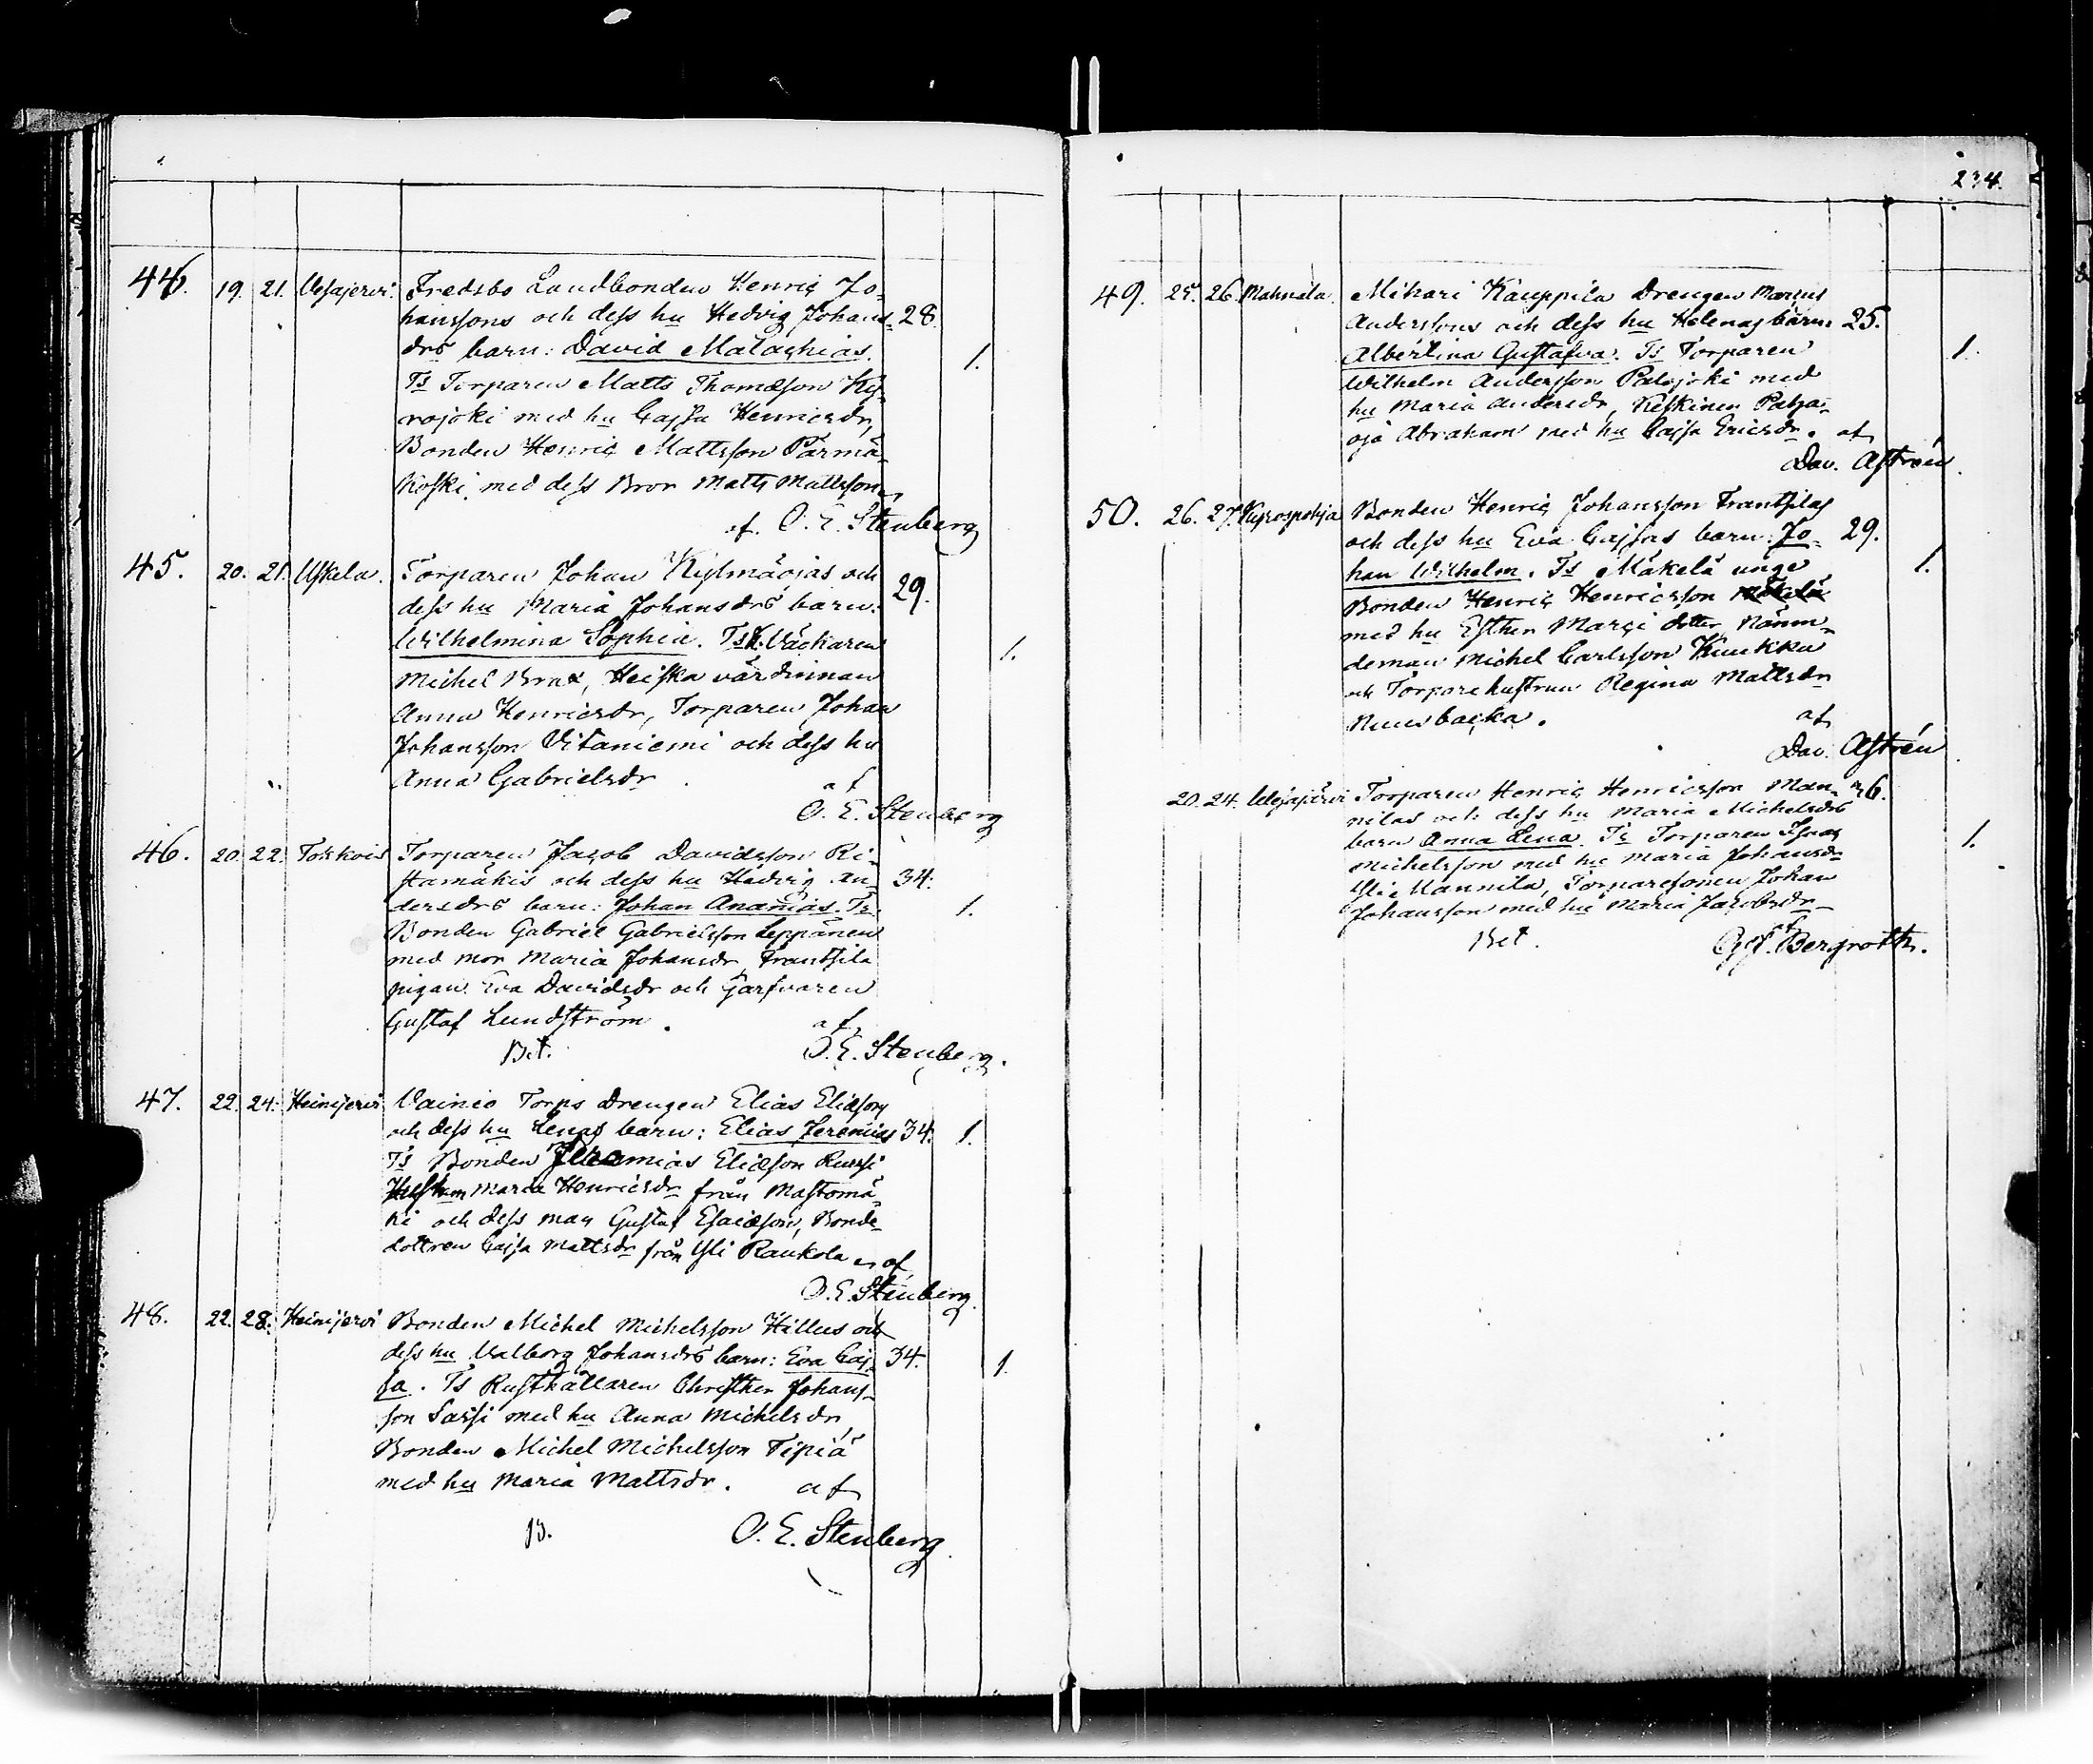 44. 19. 21. Vesajervi. Fredsbo Landbonden Henric Jo-
hanssons och dess hu Hedvig Johans- 28.
drs barn: David Malachias. 1.
Ts Torparen Matts Thomæson Ky-
rojoki med hu Cajsa Henricsdr,
Bonden Henric Mattsson Pärmä-
koski, med dess Bror Matts Mattsson,
af O. E. Stenberg
45. 20. 21. Uskela. Torparen Johan Kylmäojas och
dess hu Maria Johansdrs barn: 29.
Wilhelmina Sophia. Ts K. Väckaren 1.
Michel Brax, Heiska värdinnan
Anna Henricsdr, Torparen Johan
Johansson Vitaniemi och dess hu
Anna Gabrielsdr. af
O. E. Stenberg
46. 20. 22. Tokkois Torparen Jacob Davidsson Ri-
stamäkis och dess hu Hedvig An- 34.
dersdrs barn: Johan Ananias. Ts. 1.
Bonden Gabriel Gabrielsson Leppänen
med mor Maria Johansdr Frantsila
pigan Eva Davidsdr och Garfvaren
Gustaf Lundström. af
Bet. O. E. Stenberg.
47. 22. 24. Heinijervi Vainio Torps Drengen Elias Eliæsons
och dess hu Lenas barn: Elias Jeremias 34. 1.
Ts Bonden Jeremias Eliæson Russi
Hustrun Maria Henricsdr från Mastomä-
ki och dess man Gustaf Esaiæson, Bonde-
dottren Cajsa Mattsdr från Yli Raukola af
O. E. Stenberg.
48. 22. 28. Heinijervi Bonden Michel Michelsson Hillus och
dess hu Valborg Johansdrs barn: Eva Caj- 34. 1.
sa. Ts Rusthållaren Christher Johans-
son Sassi med hu Anna Michelsdr,
Bonden Michel Michelsson Tipiä
med hu Maria Mattsdr. af
B. O. E. Stenberg.
234.
49. 25. 26. Mahnala. Mihari Kauppila Drengen Marcus
Anderssons och dess hu Helenas barn: 25.
Albertina Gustafva. Ts Torparen 1.
Wilhelm Andersson Palojoki med
hu Maria Andersdr, Keskinen
oja Abraham med hu Cajsa Ericsdr. af
Dav. Astrén.
50. 26. 27. Kyrospohja Bonden Henric Johansson Frantsilas
och dess hu Eva Cajsas barn: Jo- 29.
han Wilhelm. Ts Mäkelä unge 1.
Bonden Henric Henricsson Mäkelä
med hu Esther Marci dotter Nämn-
deman Michel Carlsson Kuukka
och Torpare hustrun Regina Mattsdr
Nuusbacka. af
Dav. Astrén
20. 24. Vesajärvi Torparen Henric Henricsson Man- 26.
nilas och dess hu Maria Michelsdrs
barn Anna Lena. Ts Torparen Isaac 1.
Michelsson med hu Maria Johansdr
Yli Mannila, Torparesonen Johan
Johansson med hu Maria Jacobsdr
Bet. af
Bergroth.